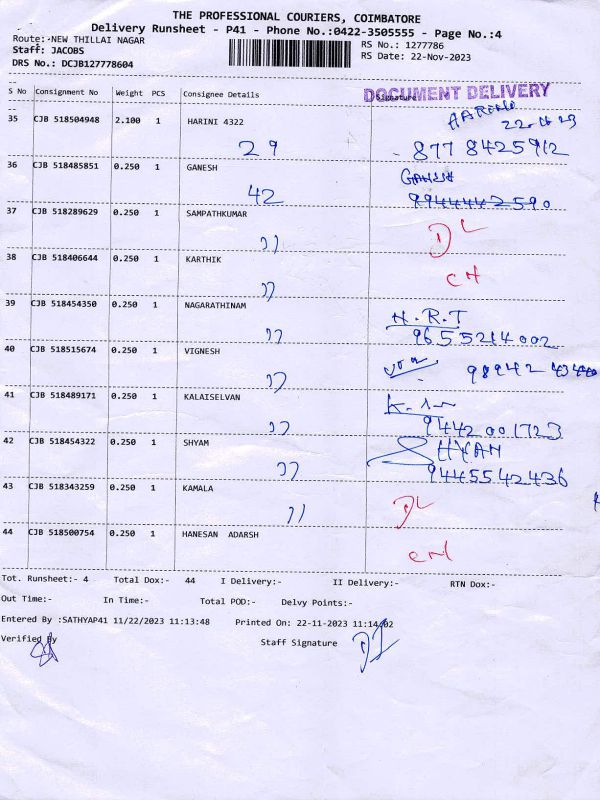 THE PROFESSIONAL COURIERS, COIMBATORE
Delivery Runsheet - P41 - Phone No.:0422-3505555 - Page No.:4
Route:-NEW THILLAI NAGAR
RS No.: 1277786
Staff: JACOBS
RS Date: 22-Nov-2023
DRS No.: DCJB127778604
DOCUMENT DELIVERY
S No Consignment No Weight PCS Consignee Details Signature
22.11.23
35 CJB 518504948 2.100 1 HARINI 4322
29 8778425912
36 CJB 518485851 0.250 1 GANESH GANESH
42 9944442590
37 CJB 518289629 0.250 1 SAMPATHKUMAR
,, DL
38 CJB 518406644 0.250 1 KARTHIK
,, CH
39 CJB 518454350 0.250 1 NAGARATHINAM H.R.T
,, 9655214002
40 CJB 518515674 0.250 1 VIGNESH
,,
41 CJB 518489171 0.250 1 KALAISELVAN
,, 9442001723
42 CJB 518454322 0.250 1 SHYAM SHYAM
,, 9445542436
43 CJB 518343259 0.250 1 KAMALA
,, DL
44 CJB 518500754 0.250 1 HANESAN ADARSH
Tot. Runsheet:- 4 Total Dox:- 44 I Delivery:- II Delivery:- RTN Dox:-
Out Time:- In Time:- Total POD:- Delvy Points:-
Entered By :SATHYAP41 11/22/2023 11:13:48 Printed On: 22-11-2023 11:14:02
Verified By Staff Signature